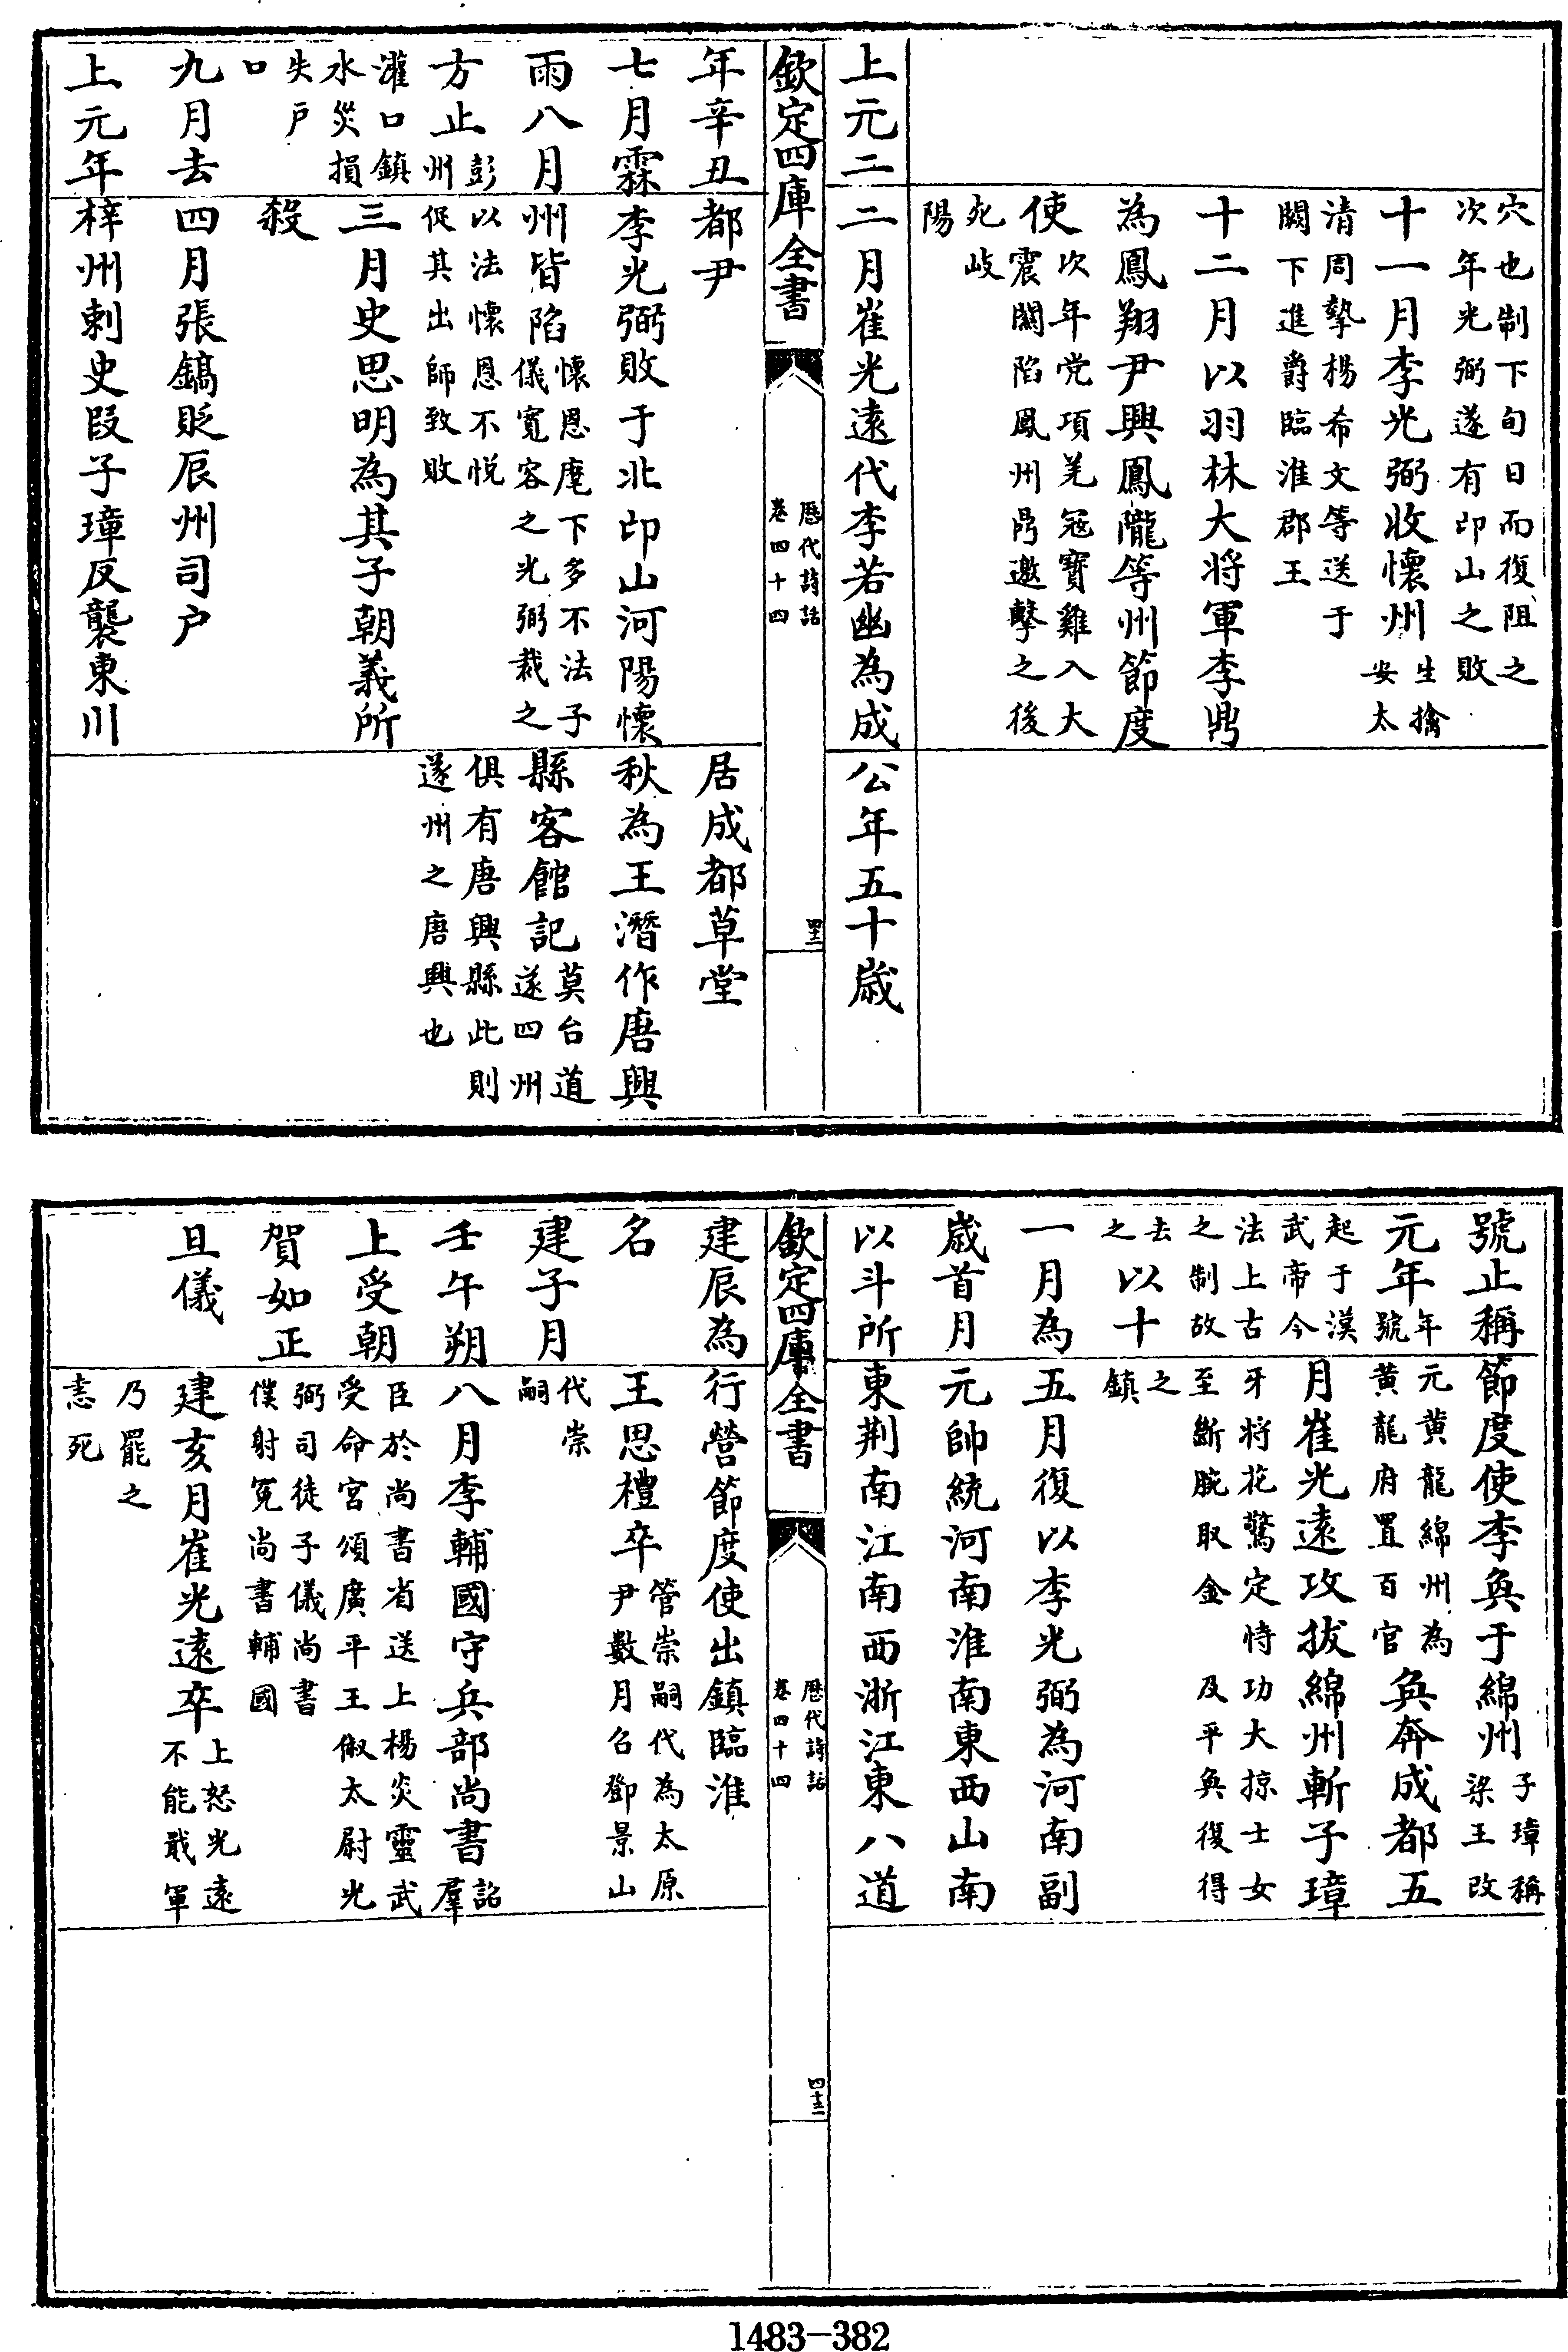 穴也制下旬日而復阻之
次年光弼遂有邙山之敗
十一月李光弼收懷州生擒安太
清周摯楊希文等送于
闕下進爵臨淮郡王
十二月以羽林大將軍李鼎
為鳳翔尹興鳳隴等州節度
使次年党項羌寇寶雞入大震關陷鳳州鼎邀擊之後
死岐
陽
上元二
二月崔光遠代李若幽為成
公年五十歲
欽定四庫全書
歷代詩話
卷四十四
四十二
年辛丑
七月霖
雨八月
方止彭州
灌口鎮
水災損
失戶
口
九月去
上元年
都尹
李光弼敗于北邙山河陽懷
州皆陷懷恩麾下多不法子儀寬容之光弼裁之
以法懷恩不悅
促其出師致敗
三月史思明為其子朝義所
殺
四月張鎬貶辰州司户
梓州刺史段子璋反襲東川
居成都草堂
秋為王潛作唐興
縣客館記莫台道遂四州
俱有唐興縣此則
遂州之唐興也
號止稱
元年年號
起于漢
武帝今
法上古
之制故
去之以十
一月為
歲首月
以斗所
節度使李奐于綿州子璋稱梁王改
元黃龍綿州為黃龍府置百官奐奔成都五
月崔光遠攻拔綿州斬子璋
牙將花驚定恃功大掠士女
至斷腕取金及平奐復得
之
鎮
五月復以李光弼為河南副
元帥統河南淮南東西山南
東荆南江南西浙江東八道
欽定四庫全書
歷代詩話
卷四十四
四十三
建辰為
名
建子月
壬午朔
上受朝
賀如正
旦儀
行營節度使出鎮臨淮
王思禮卒管崇嗣代為太原尹數月召鄧景山
代崇
嗣
八月李輔國守兵部尚書詔羣
臣於尚書省送上楊炎靈武
受命宮頌廣平王俶太尉光
弼司徒子儀尚書
僕射冕尚書輔國
建亥月崔光遠卒上怒光遠不能戢軍
乃罷之
恚死
1483—382